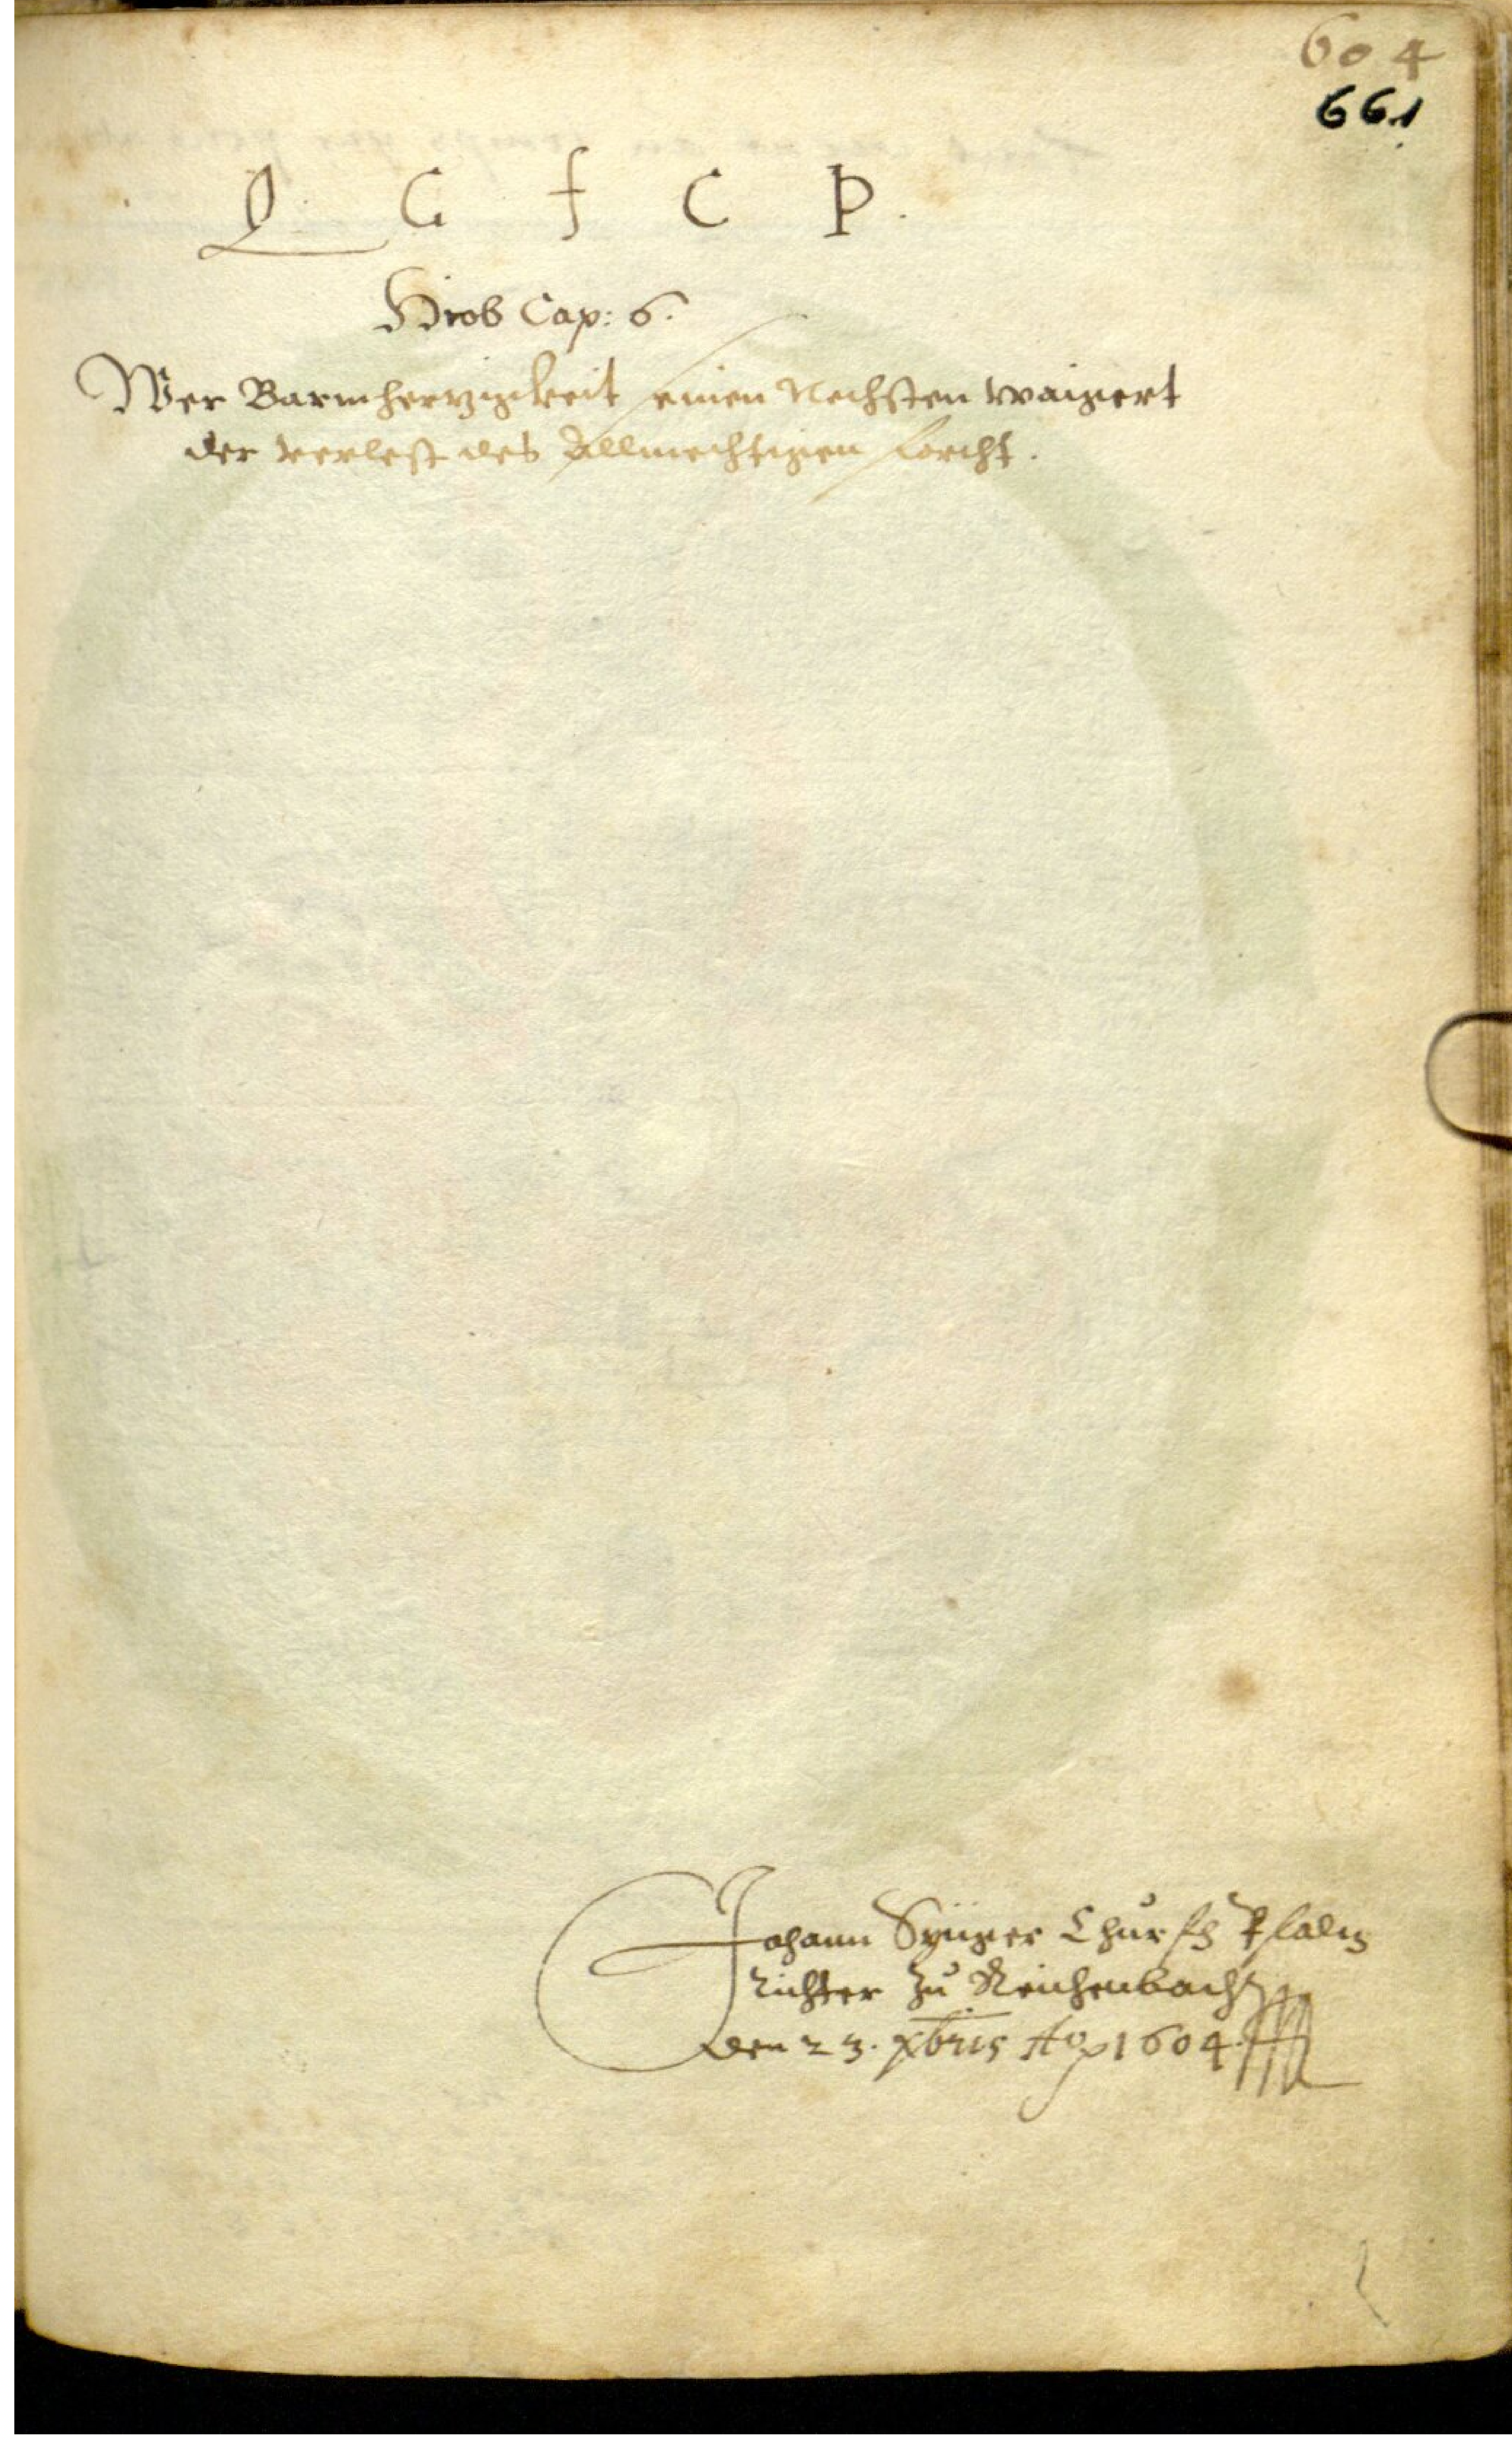 604
661
Q G F C P.
Hiob Cap: 6.
Wer Barmhertzigkeit seinen Nechsten waigert
der verlest des Allmechtigen forcht.
Johann Churf Pfaltz
Richter zu Reichenbach
den 23. Xbris Ao 1604